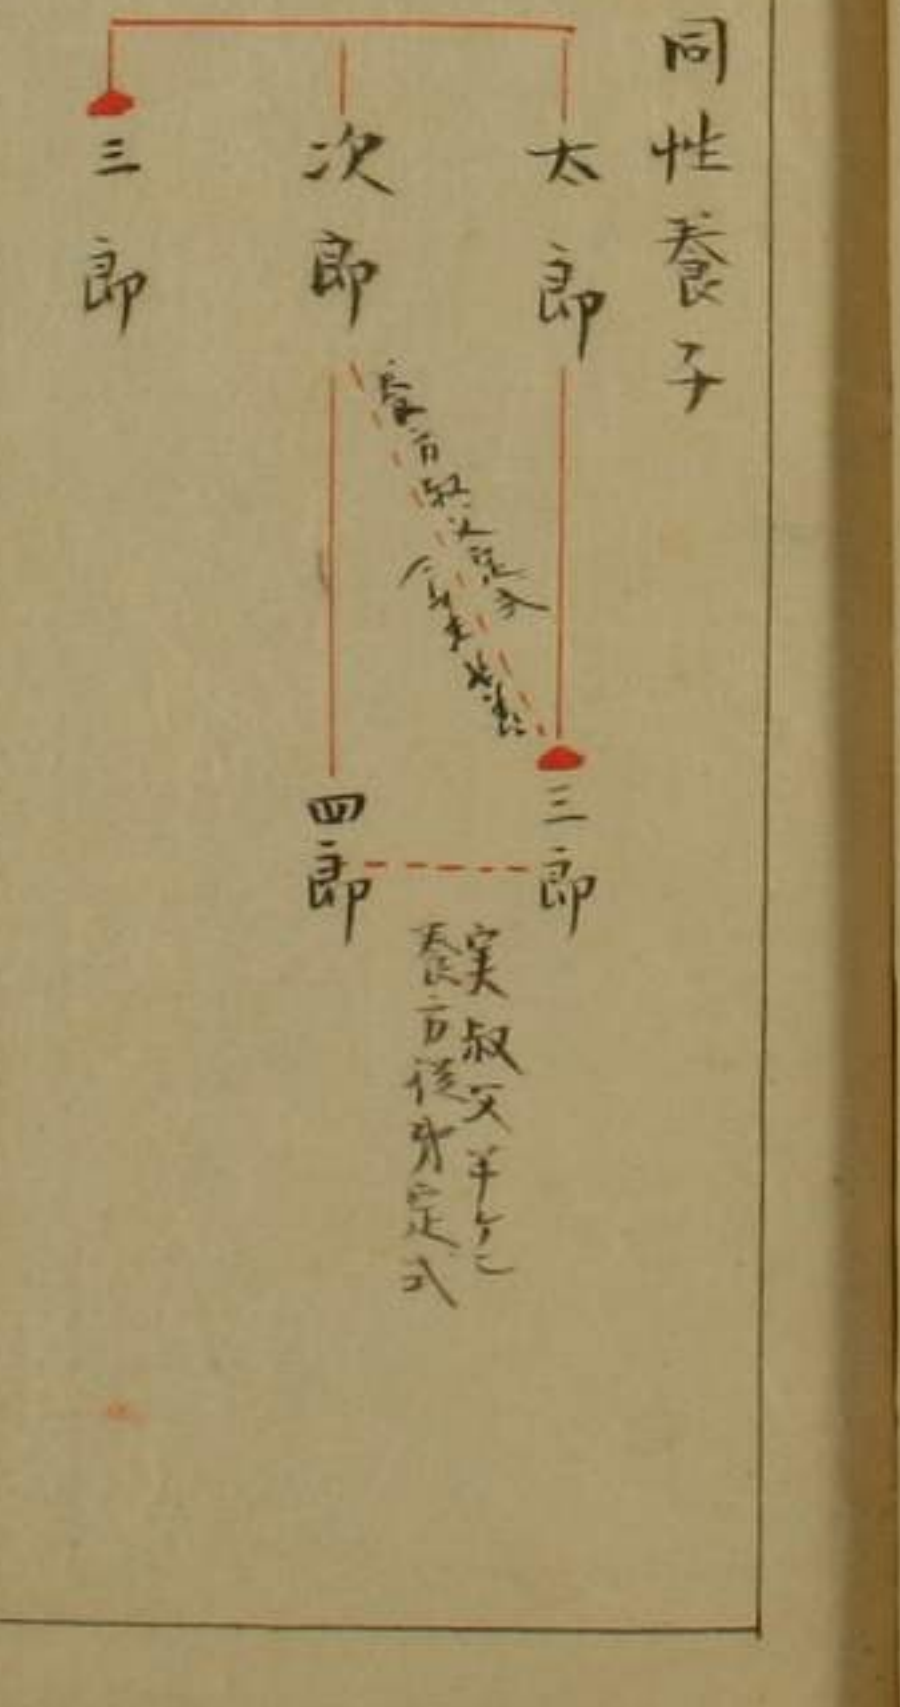 同性養子
太郎
次郎
三郎
養方叔父定式
三郎
四郎
実叔父半ケ
養方従弟定式